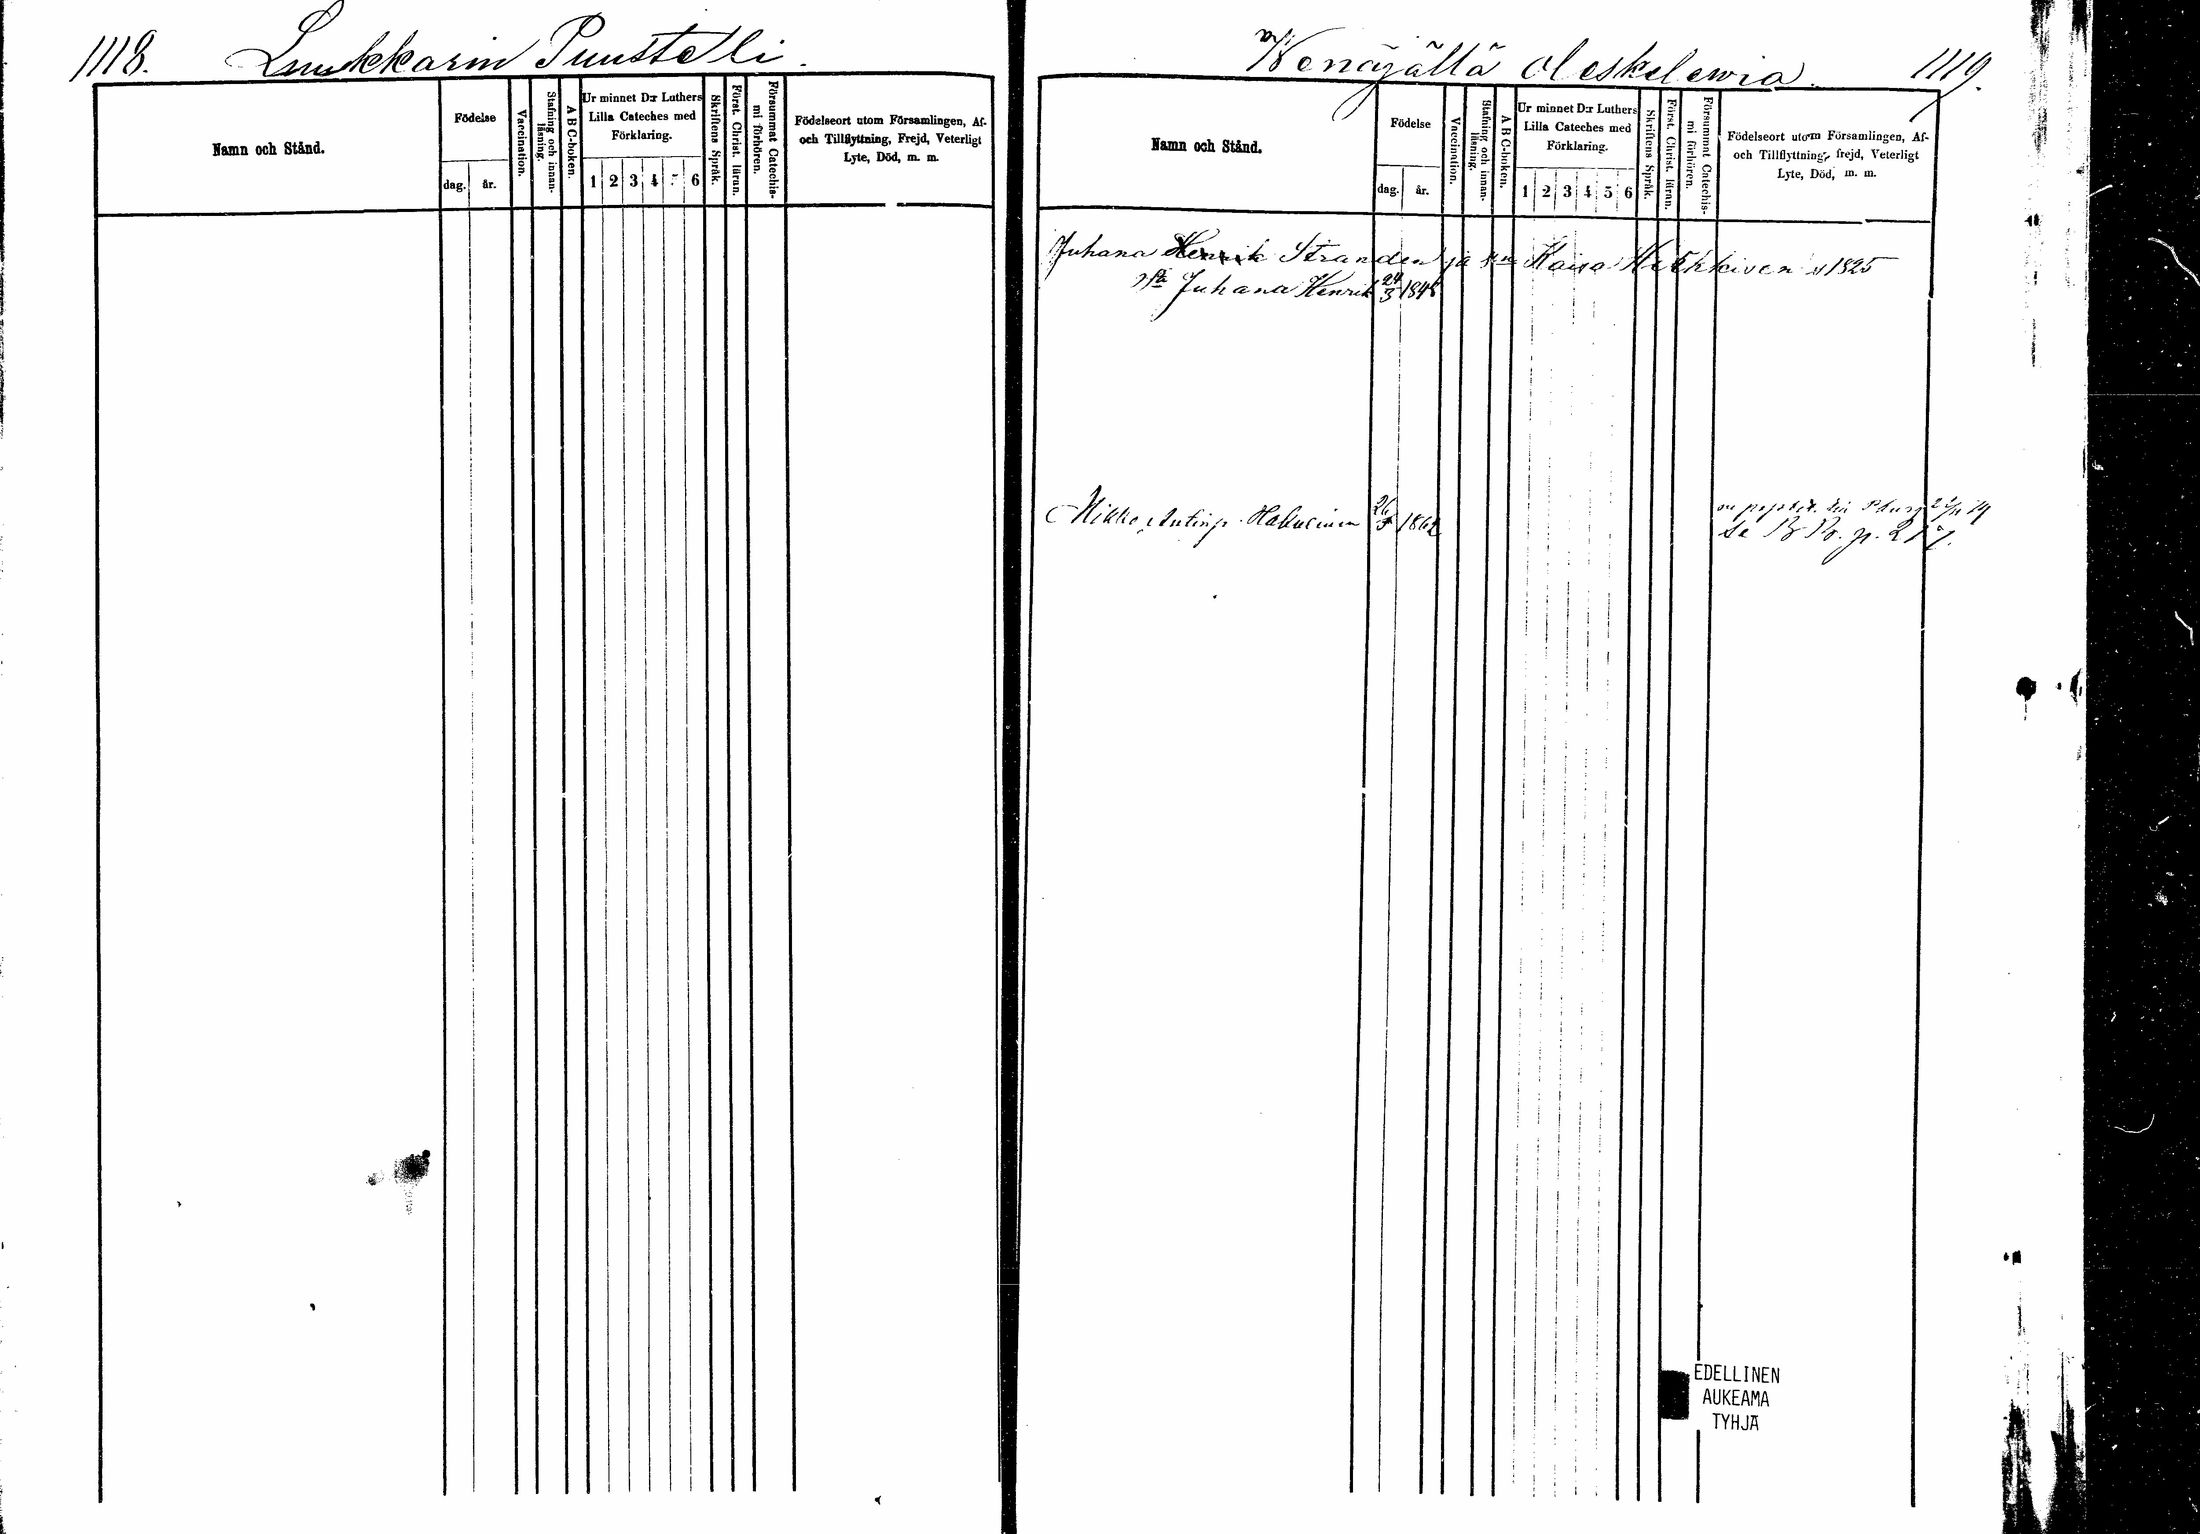 1118.
Lukkarin Puustelli.
Namn och Stånd.
Födelse
dag. år.
Vaccination.
Stafning och innanläsning.
A B C-boken.
Ur minnet D:r Luthers
Lilla Cateches med
Förklaring.
1 2 3 4 5 6
Skriftens Språk.
Först. Christ. läran.
Försummat Catechismi förhören.
Födelseort utom Församlingen, Af-
och Tillflyttning, Frejd, Veterligt
Lyte, Död, m. m.
Wenäjällä oleskelewia.
1119.
Namn och Stånd.
Födelse
dag. år.
Vaccination.
Stafning och innanläsning.
A B C-boken.
Ur minnet D:r Luthers
Lilla Cateches med
Förklaring.
1 2 3 4 5 6
Skriftens Språk.
Först. Christ. läran.
Försummat Catechismi förhören.
Födelseort utom Församlingen, Af-
och Tillflyttning, frejd, Veterligt
Lyte, Död, m. m.
Juhana Henrik Stranden ja Kaisa Heikkinen 1825
Juhana Henrik 24/3 1848
Mikko Antinp. 26 1862
p. 217.
EDELLINEN
AUKEAMA
TYHJÄ